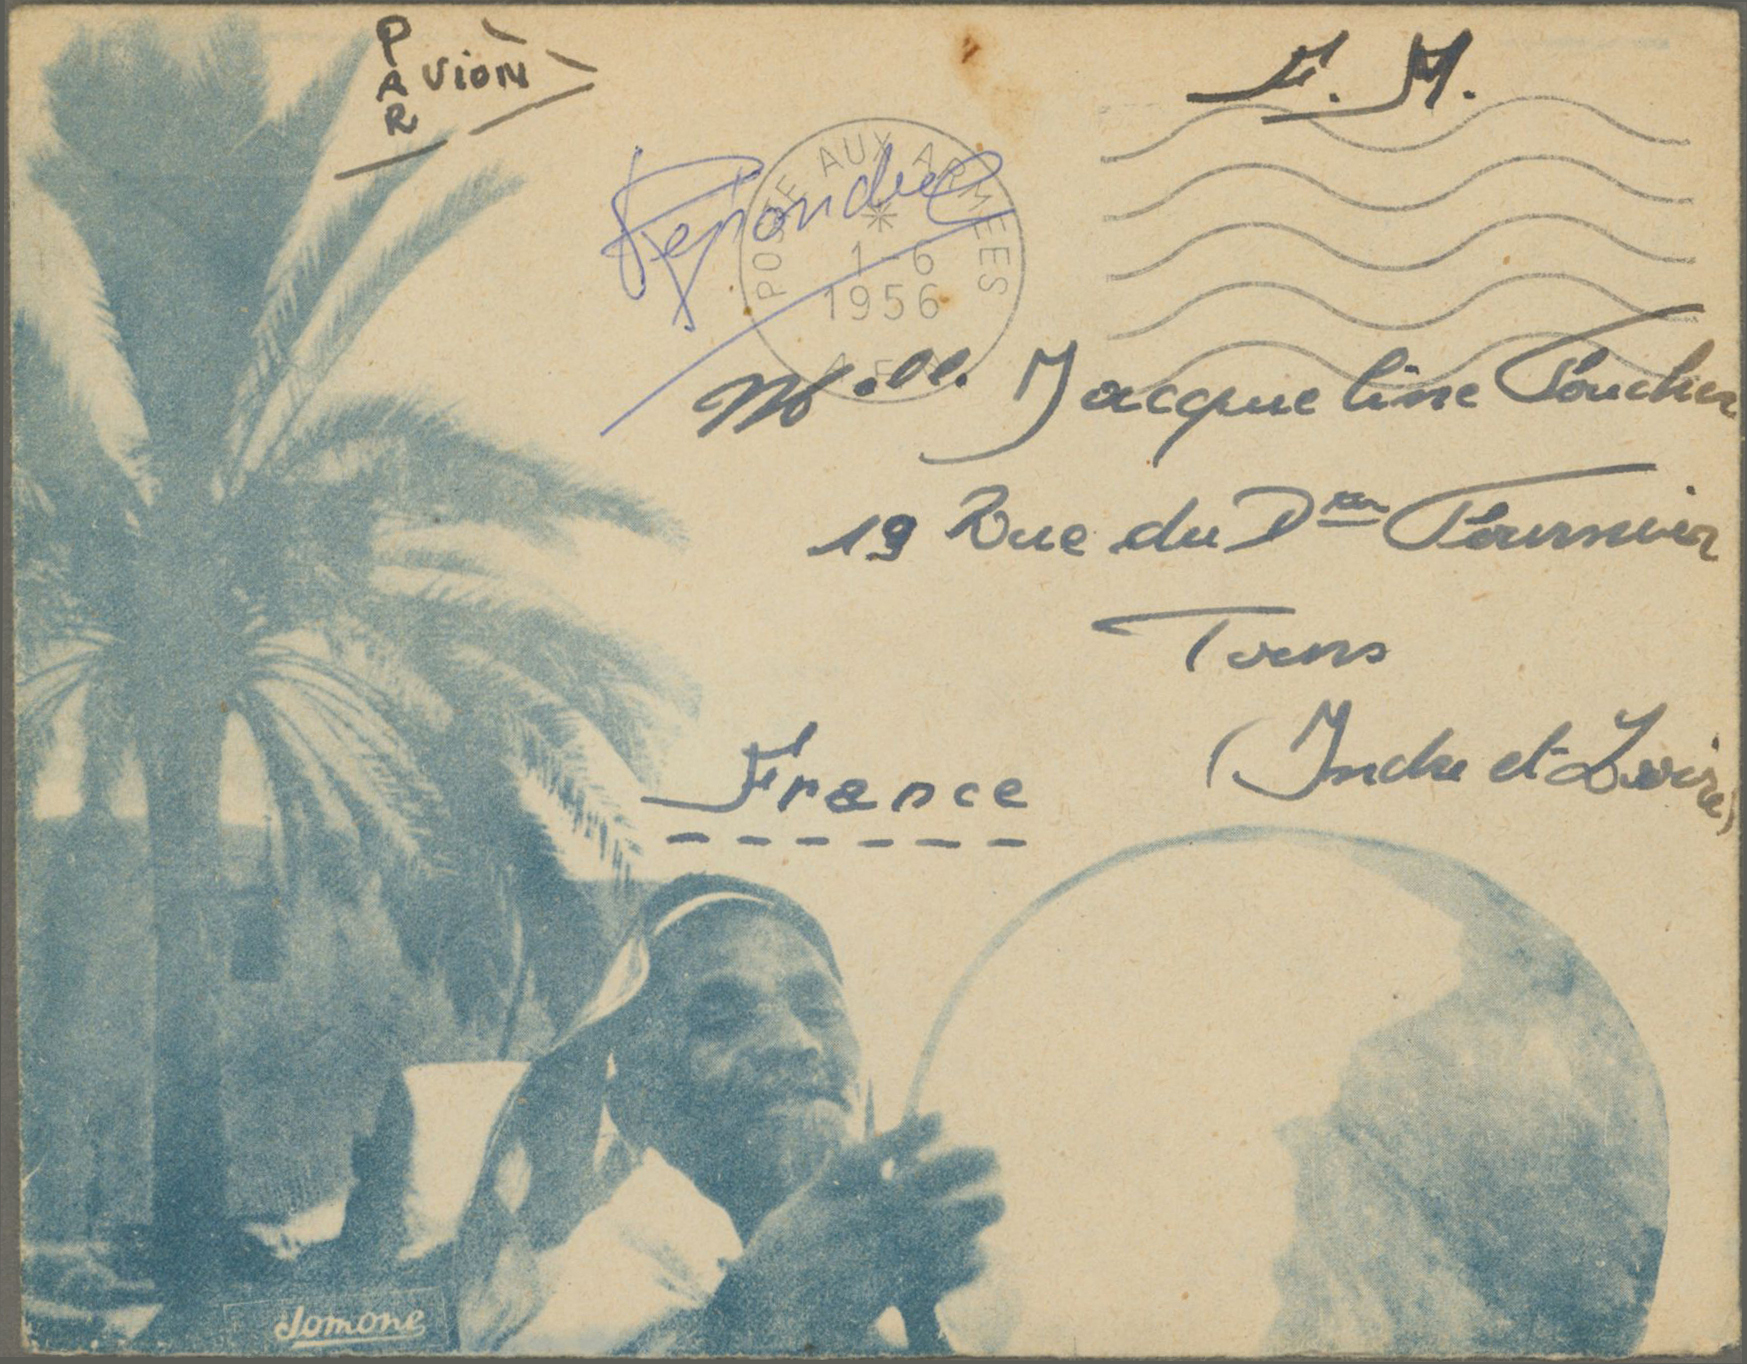 PAR AVION
F. M.
Répondu
POSTE AUX ARMEES
*
1-6
1956
Melle. Jacqueline Foucher
19 Rue du Dteur Fournier
Tours
(Indre et Loire)
France
Jomone